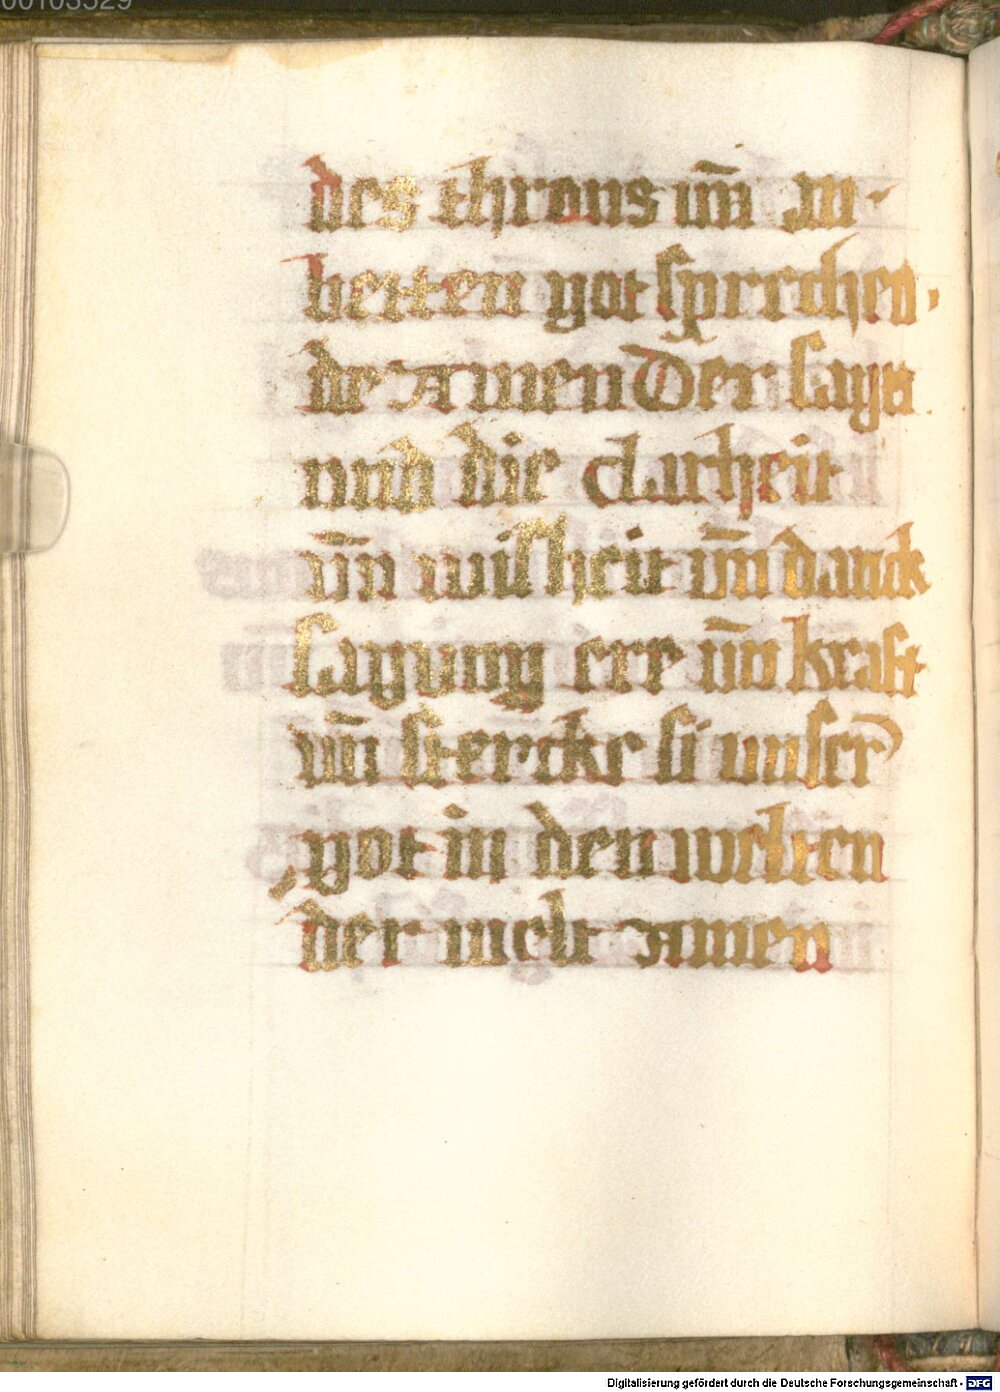 00103529
des throns um̄ an-
betten got sprechen-
de Amen Der sagn
und die clarheit
un̄ wisheit um̄ danck
sagung ere un̄ kraft
un̄ stercke si unser
got in den welten
der welt Amen
Digitalisierung gefördert durch die Deutsche Forschungsgemeinschaft - DFG